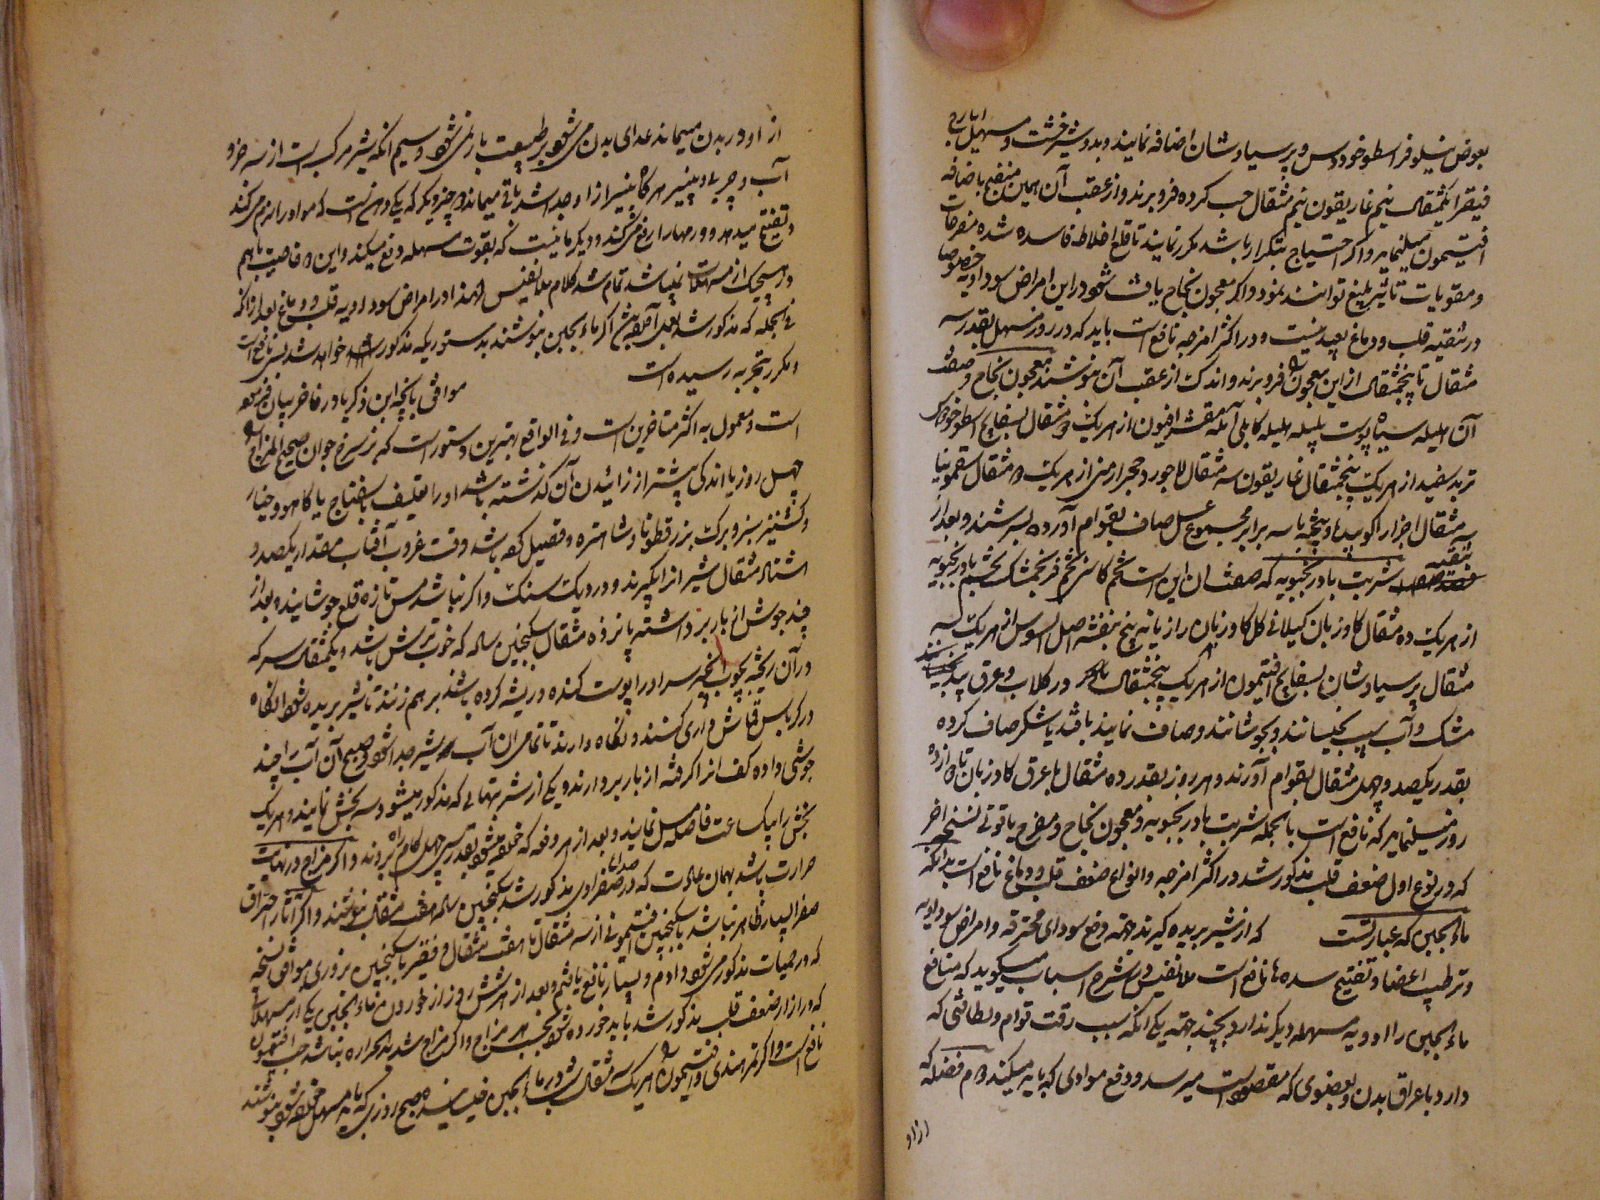 بعوض نیلوفر اسطوخودوس و پرسیاوشان اضافه نمایند و بدو شیرخشت و مسهل ایارج
فیقرا یکمثقال نیم غاریقون نیم مثقال حب کرده فرو برند و از عقب آن همین منضج باضافه
افتیمون میلنمایر و اکر احتیاج بتکرار باشد مکرر نمایند تا قلع اخلاط فاسده شده مفرحات
و مقویات تاثیر بلیغ توانند نمود و اکر معجون نجاح یافت شود در این امراض سوداویه خصوصا
در تنقیه قلب و دماغ بعید نیست و در اکثر امزجه نافع است باید که در روز مسهل بقدر سه
مثقال تا پنجمثقال از این معجون فرو برند و اندکی از عقب آن بنوشند معجون نجاح وصف
آن هلیله سیاه پوست بلیله هلیله کابلی آمله مقشر افیون از هریک ده مثقال بسفایج اسطوخودوس
تربد سفید از هریک پنجمثقال غاریقون سه مثقال لاجورد حجر ارمنی از هریک ۵ مثقال سقمونیا
سه مثقال اجزا را کوبیده و بیخته با سه برابر مجموع عسل صاف بقوام آورده بسرشند و بعد از
تنقیه شربت بادرنجبویه که صفت ان این است تخم کاسنی تخم فرنجمشک تخم بادرنجبویه
از هریک ده مثقال کاوزبان کیلانی کل کاوزبان رازیانه بیخ بنفشه اصل السوس از هریک سه
مثقال پرسیاوشان بسفایج افتیمون از هریک پنجمثقال در کلاب و عرق بید
مشک و آب سیب بخیسانند و بجوشانند و صاف نمایند با قند یا شکر صاف کرده
بقدر یکصد و چهل مثقال بقوام آورند و هر روز بقدر ده مثقال با عرق کاوزبان تا دوازده
روز میلنمایر که نافع است بالجمله شربت بادرنجبویه و معجون نجاح و مفرح یاقوتی نسخه اخر
که در نوع اول ضعف قلب مذکور شد در اکثر امزجه و انواع ضعف قلب و دماغ نافع است بدانکه
ماءالجبن که عبارتست که از شیر بریده کیرند جهة دفع سودای محترقه و امراض سوداویه
و ترطیب اعضا و تفتیح سده ها نافع است ملا نفیس در شرح اسباب میکوید که منافع
ماءالجبن را ادویه مسهله دیکر ندارد بچند جهة یکی انکه بسبب رقت قوام و لطافتی که
دارد باعراق بدن و بعضوی که مقصود است میرسد و دفع موادی که باید میکند دوم فضله که
از او
از او در بدن میماند غدای بدن می شود بر طبیعت بار نمی شود سیم انکه شیر مرکب است از سه جزو
آب و چربی و پنیر هر کاه پنیر از او جدا شد باقی میماند دو چیز دیکر که یکی دهنیت است که مواد را نرم می کند
و تفتیح میدهد و ورمهارا رفع می کند و دیکر مائیت که بقوت مسهله دفع میکند و این دو خاصیت باهم
در هیچیک از مسهلات نمیباشد تمام شد کلام ملا نفیس لهذا در امراض سوداویه قلب و دماغ بعد از انکه
فی الجمله که مذکور شد بعمل آمد اکر ماءالجبن بنوشند بدستوریکه مذکور خواهد شد بسی نافع است
و مکرر بتجربه رسیده است موافق بانچه ابن ذکریا در فاخر بیان فرموده
است و معمول به اکثر متاخرین است و فی الواقع بهترین دستور است که بز سرخ جوان صحیح المزاج
چهل روز یا اندکی پیشتر از زائیدن آن کذشته باشد او را تعلیف باسفناج یا کاهو و خیار
و کشنیز سبز و برک بزرقطونا و شاهتره و فصیل کرده باشد وقت غروب آفتاب مقدار یکصد و
هشتاد مثقال شیر از او بکیرند و در دیک سنک و اکر نباشد مس تازه قلع جوشانیده بعد از
چند جوش از بار بر داشته پانزده مثقال سکنجبین ساله که خوب ترش باشد و یکمثقال سرکه
در آن ریخته بچوب انجیر سر او را پوست کنده و ریشه کرده باشند بر هم زنند تا شیر بریده شود انکاه
در کرباس قماش داری کنند و نکاه دارند تا تمامی ان آب شیر جدا شود صبح آن آب را چند
جوشی داده کف انرا کرفته از بار بر دارند و یکی از شربتهائی که مذکور میشود سه بخش نمایند و هریک
بخش را بیک ساعت فاصله میل نمایند و بعد از هر دفعه که خورده میشود بقدر سی چهل کام راه بروند و اکر مزاج در نهایت
حرارت باشد بهمان علامت که در صداع صفراوی مذکور شد سکنجبین ساله هفت مثقال بنوشند و اکر آثار احتراق
صفرا بسیار ظاهر نباشد با سکنجبین افتیمونی از سه مثقال تا هفت مثقال و فقیر با سکنجبین بزوری موافق نسخه
که در حمیات مذکور می شود دادم و بسیار نافع یافتم و بعد از هر شش روز از خوردن ماءالجبن یکی از مسهلاتی
که در ضعف قلب مذکور شد باید خورده شود بحسب هر مزاج و اکر مزاج شدید الحراره نباشد حب افتیمون
نافع است و اکر تمر هندی و افتیمون هریک سه مثقال شب در ماءالجبن خیسانیده صبح روزی که بایه مسهل خورده شود بنوشند